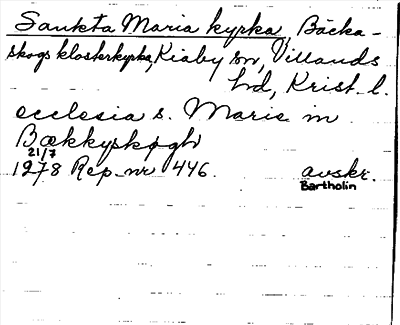 Sankta Maria kyrka, Bäcka-
skogs klosterkyrka, Kiaby sn, Villands
hd, Krist. l.
ecclesia s. Marie in
Bækkyskogh
21/7
1278 Rep. nr 446. avskr.
Bartholin